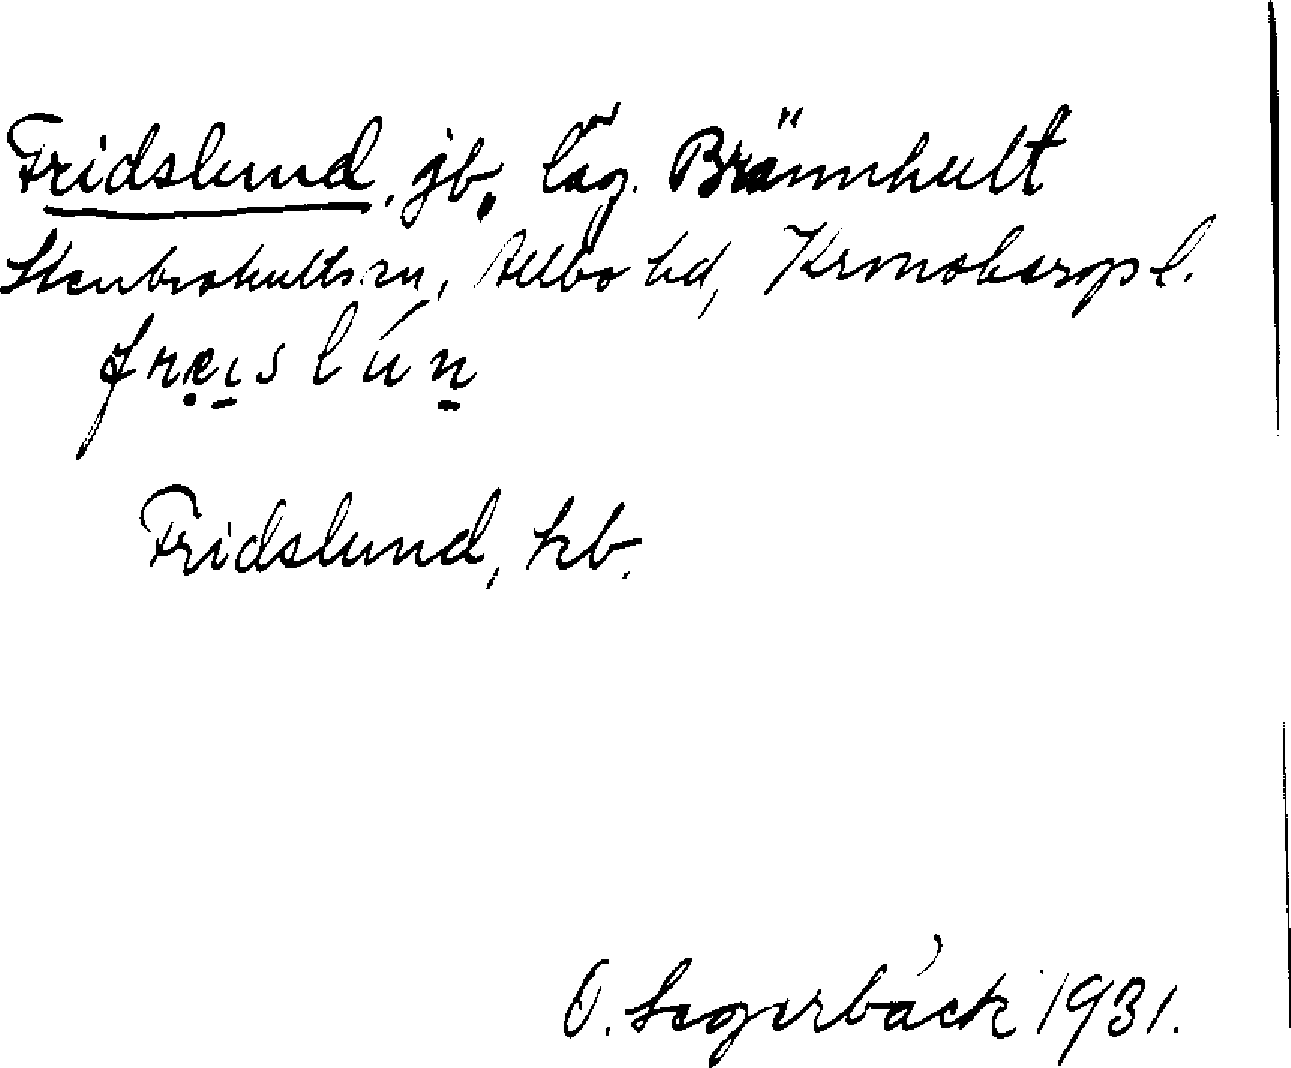 Fridslund, jb, läg. Brännhult
Stenbrohults sn, Allbo hd, Kronobergs l.
frẹi̠slún̠
Fridslund, kb.
O. Segerbäck 1931.